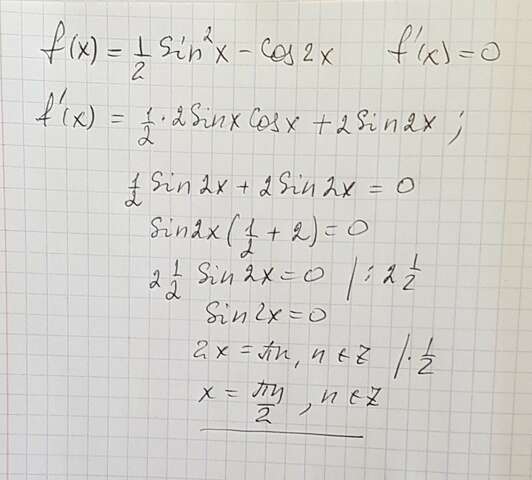 f(x) = 1/2 Sin²x - Cos2x f'(x) = 0
f'(x) = 1/2 · 2Sinx Cosx + 2Sin2x ;
1/2 Sin2x + 2Sin2x = 0
Sin2x (1/2 + 2) = 0
2 1/2 Sin2x = 0 / : 2 1/2
Sin2x = 0
2x = πn, n ∈ Z / · 1/2
x = πn/2 , n ∈ Z